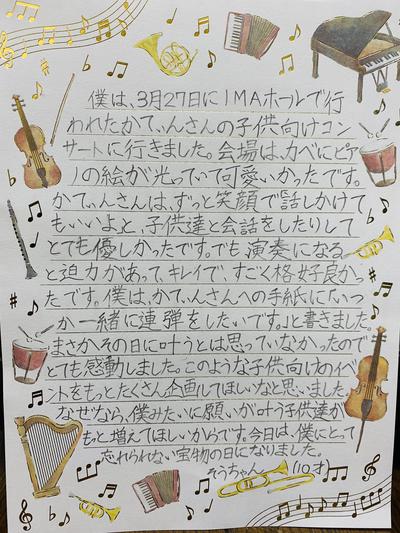 僕は、3月27日にIMAホールで行
われたかてぃんさんの子供向けコン
サートに行きました。会場は、カベにピア
ノの絵が光っていて可愛いかったです。
かてぃんさんは、ずっと笑顔で「話しかけて
もいいよ」と、子供達と会話をしたりして
とても優しかったです。でも演奏になる
と迫力があって、キレイで、すごく格好良かっ
たです。僕は、かてぃんさんへの手紙に「いつ
か一緒に連弾をしたいです。」と書きました。
まさかその日に叶うとは思っていなかったので
とても感動しました。このような子供向けのイベ
ントをもっとたくさん企画してほしいなと思いました。
なぜなら、僕みたいに願いが叶う子供達が
もっと増えてほしいからです。今日は、僕にとって
忘れられない宝物の日になりました。
そうちゃん (10才)